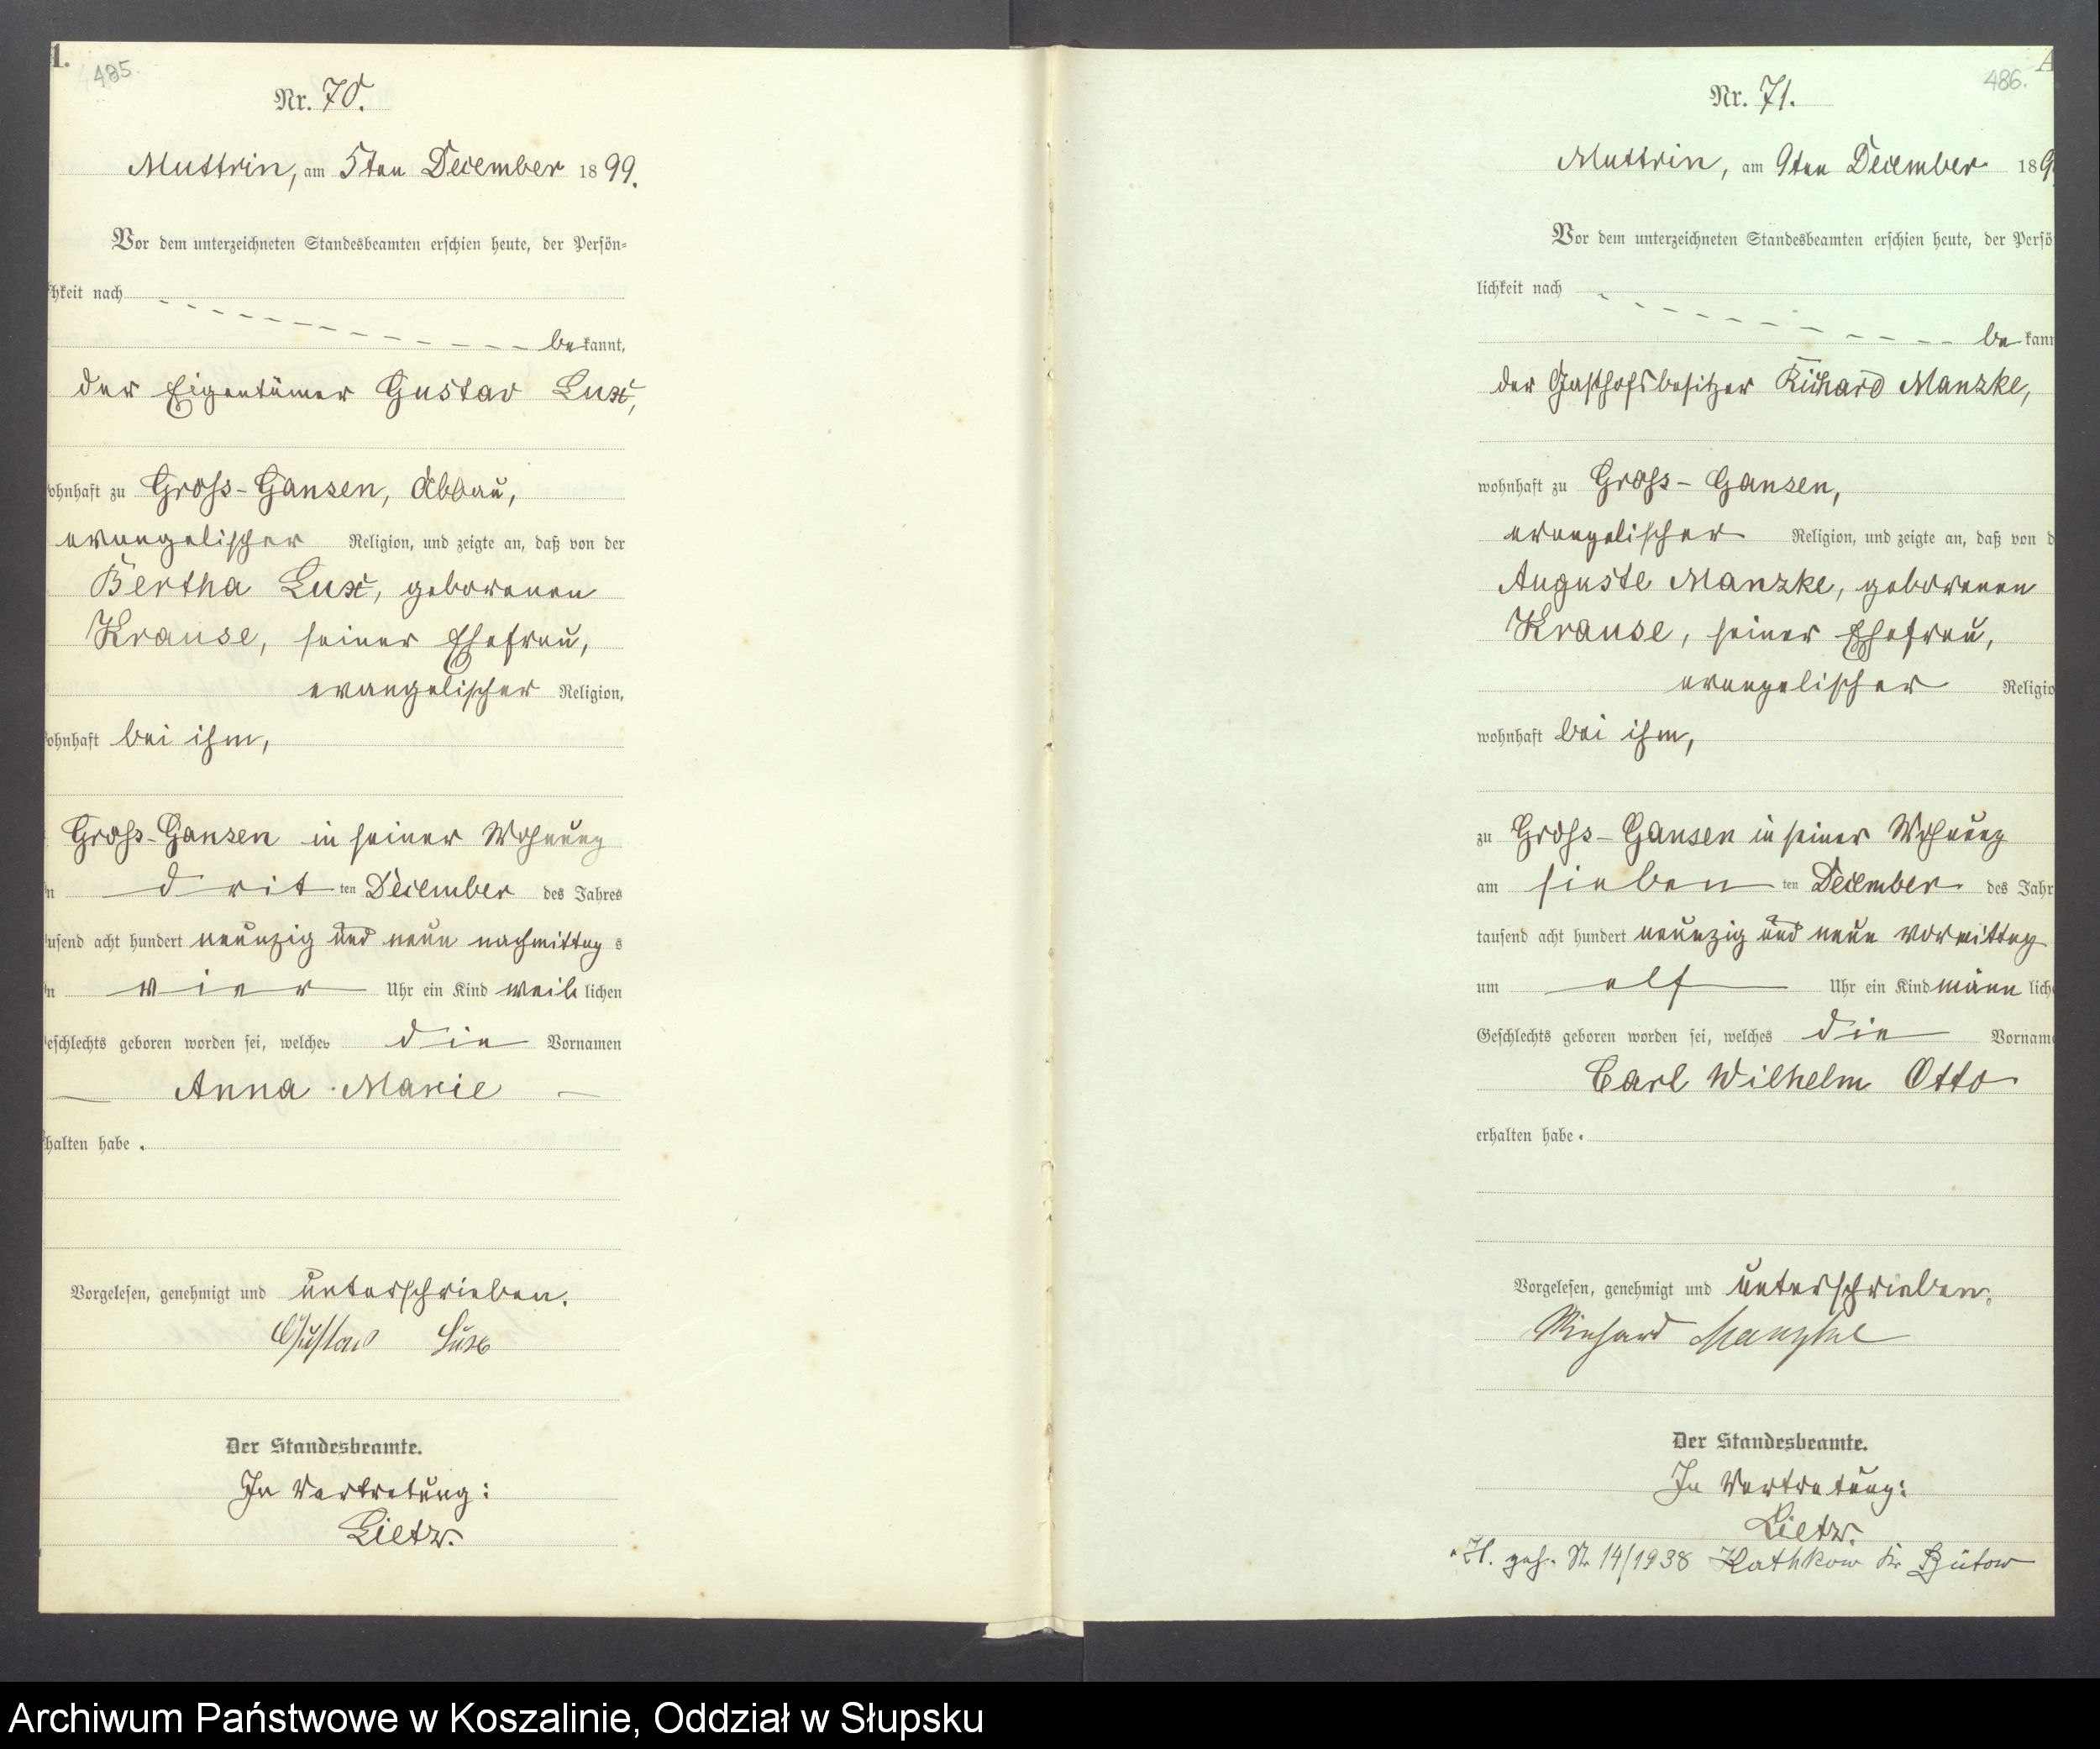 1.
485.
Nr. 70.
Muttrin, am 5ten December 1899.
Vor dem unterzeichneten Standesbeamten erschien heute, der Persön-
hkeit nach
bekannt,
der Eigentümer Gustav Lux,
ohnhaft zu Gross-Gansen, Abbau,
evangelischer Religion, und zeigte an, daß von der
Bertha Lux, geborenen
Krause, seiner Ehefrau,
evangelischer Religion,
ohnhaft bei ihm,
Gross-Gansen in seiner Wohnung
n drit ten December des Jahres
usend acht hundert neunzig und neun nachmittag s
n vier Uhr ein Kind weib lichen
eschlechts geboren worden sei, welches die Vornamen
Anna Marie
halten habe.
Vorgelesen, genehmigt und unterschrieben.
Gustav Lux
Der Standesbeamte.
In Vertretung:
Lietz.
A
486.
Nr. 71.
Muttrin, am 9ten December 189
Vor dem unterzeichneten Standesbeamten erschien heute, der Persö
lichkeit nach
be kann
der Gasthofsbesitzer Richard Manzke,
wohnhaft zu Gross-Gansen,
evangelischer Religion, und zeigte an, daß von d
Auguste Manzke, geborenen
Krause, seiner Ehefrau,
evangelischer Religio
wohnhaft bei ihm,
zu Gross-Gansen in seiner Wohnung
am sieben ten December des Jahr
tausend acht hundert neunzig und neun vormittag
um elf Uhr ein Kind männ lich
Geschlechts geboren worden sei, welches die Vornam
Carl Wilhelm Otto
erhalten habe.
Vorgelesen, genehmigt und unterschrieben.
Richard Manzke
Der Standesbeamte.
In Vertretung:
Lietz.
H. geh. Nr 14/1938 Kathkow Kr Bütow
Archiwum Państwowe w Koszalinie, Oddział w Słupsku